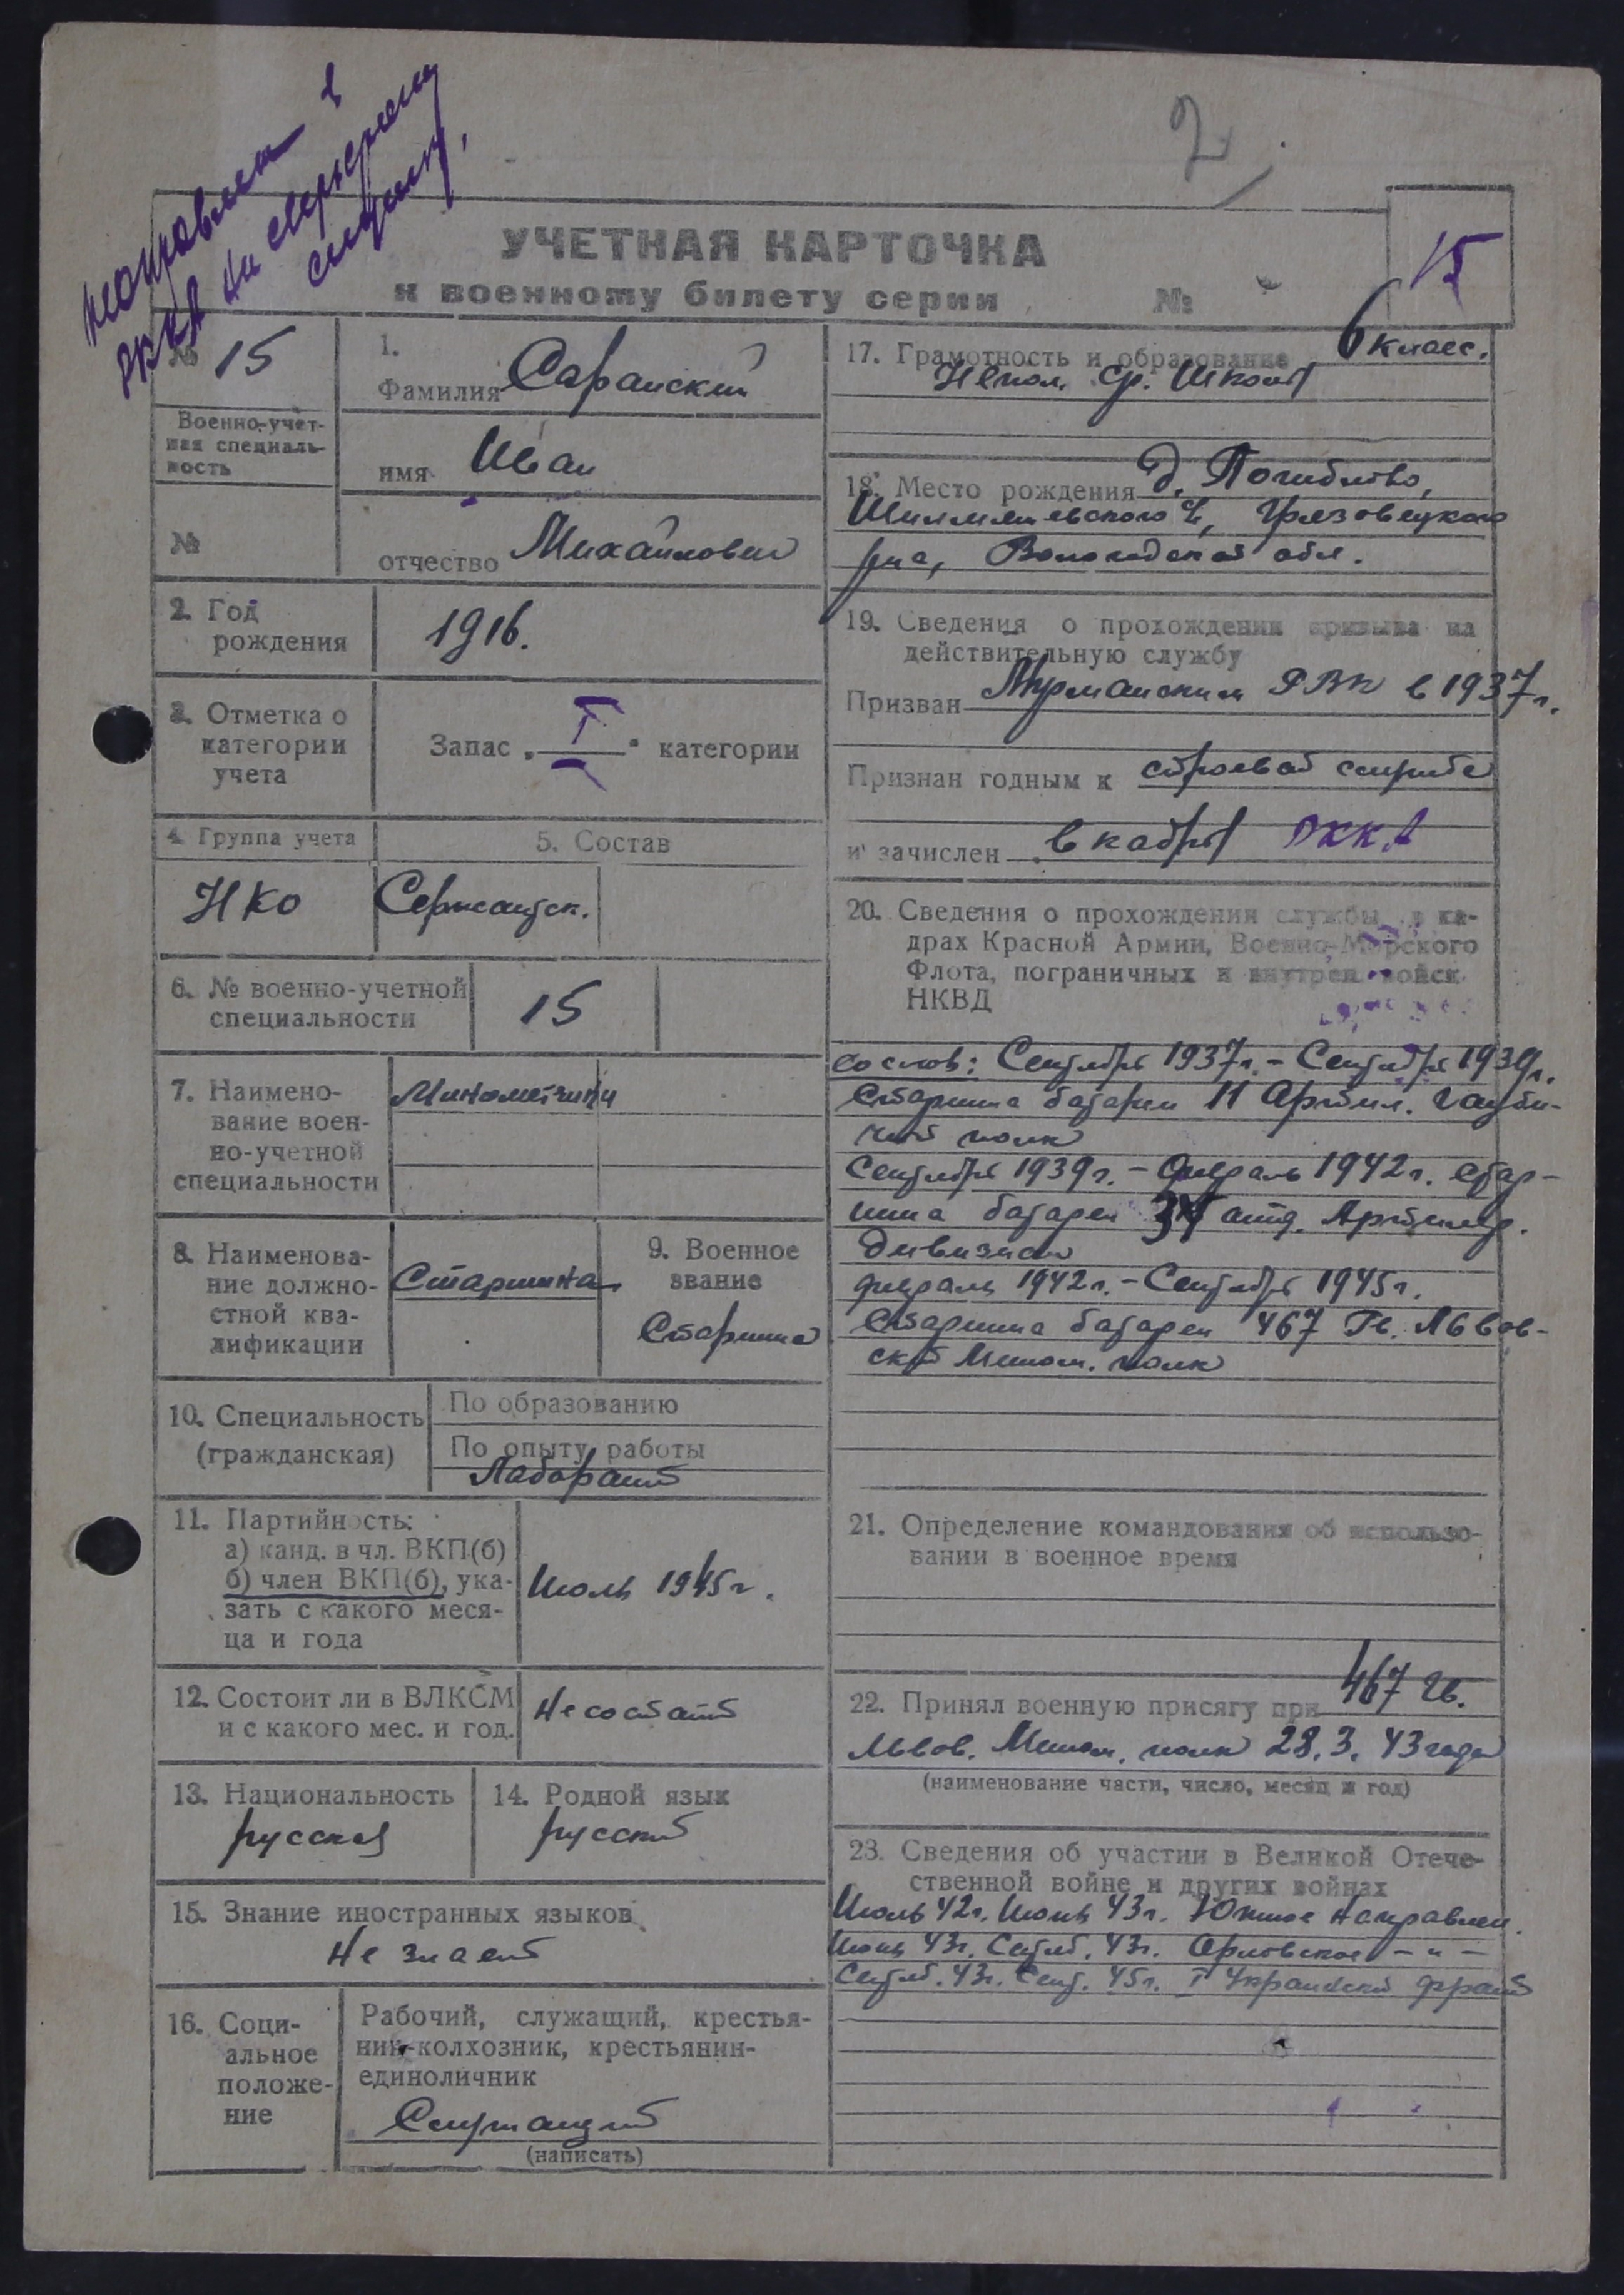 направлен в
РККА на сверхсрочну
службу.
2
15
УЧЕТНАЯ КАРТОЧКА
к военному билету серии №
№ 15
Военно-учет-
ная специаль-
ность
№
1.
Фамилия Саранский
имя Иван
отчество Михайлович
2. Год
рождения
1916.
3. Отметка о
категории
учета
Запас „ I " категории
4. Группа учета
5. Состав
НКО
Сержантск.
6. № военно-учетной
специальности
15
7. Наимено-
вание воен-
но-учетной
специальности
Минометчики
8. Наименова-
ние должно-
стной ква-
лификации
Старшина
9. Военное
звание
Старшина
10. Специальность
(гражданская)
По образованию
По опыту работы
Лаборант
11. Партийность:
а) канд. в чл. ВКП(б)
б) член ВКП(б), ука-
зать с какого меся-
ца и года
Июль 1945г.
12. Состоит ли в ВЛКСМ
и с какого мес. и год.
Не состоит
13. Национальность
русский
14. Родной язык
русский
15. Знание иностранных языков
Не знает
16. Соци-
альное
положе-
ние
Рабочий, служащий, крестья-
нин-колхозник, крестьянин-
единоличник
Служащий
(написать)
17. Грамотность и образование 6 класс.
Непол. ср. школы
18. Место рождения д.
Грязовецкого
р-на, Вологодской обл.
19. Сведения о прохождении призыва на
действительную службу
Призван Мурманским РВК в 1937г.
Признан годным к строевой службе
и зачислен в кадры РККА
20. Сведения о прохождении службы в ка-
драх Красной Армии, Военно-Морского
Флота, пограничных и внутрен. войск
НКВД
со слов: Сентябрь 1937г. - Сентябрь 1939г.
Старшина батареи 11 Артил. Гауби-
чный полк
Сентябрь 1939г. - Февраль 1942г. стар-
шина батареи отд. Артилер.
дивизион
февраль 1942г. - Сентябрь 1945г.
Старшина батареи 467 Гв. Львов-
ский Мином. полк
21. Определение командования об использо-
вании в военное время
22. Принял военную присягу при 467 Гв.
Львов. Мином. полк 28.3.43 года
(наименование части, число, месяц и год)
23. Сведения об участии в Великой Отече-
ственной войне и других войнах
Июль 42г. Июнь 43г. Южное направлен.
Июнь 43г. Сентяб. 43г. Орловское - " -
Сентяб. 43г. Сент. 45г. I Украинский фронт